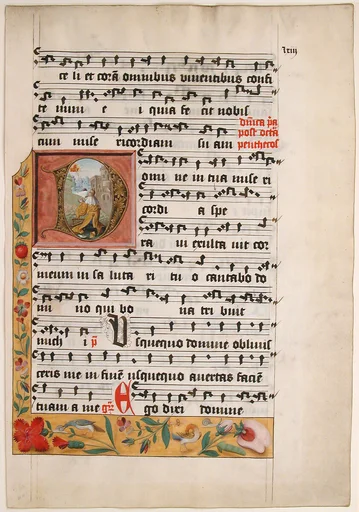 lxiii
te li et corā omnibus viventibus confi
te mini e i quia fe cit nobis
cum mise ricordiam su am
dn̄ica p̄a
post octā
penthecos
D omi ne in tua mise ri
cordi a spe
ra vi exulta vit cor
meum in sa luta ri tu o cantabo do
mi no qui bo na tri buit
mich i p̄ Usquequo domine oblivis
ceris me in finē usquequo avertas faciē
tuam a me Ego dixi domine